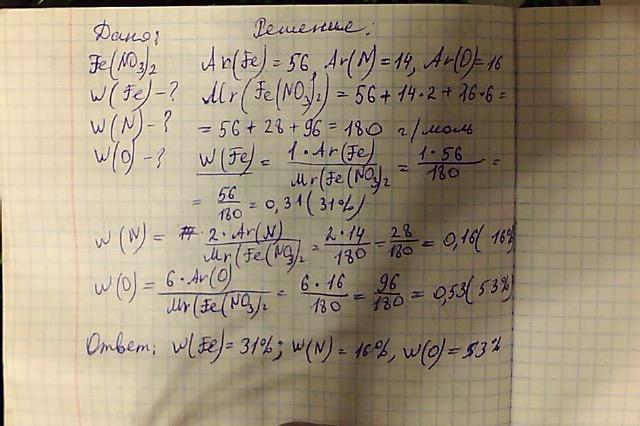 Дано: Решение:
Fe(NO₃)₂ Ar(Fe) = 56, Ar(N) = 14, Ar(O) = 16
W(Fe) - ? Mr(Fe(NO₃)₂) = 56 + 14·2 + 16·6 =
W(N) - ? = 56 + 28 + 96 = 180 г/моль
W(O) - ? W(Fe) = 1·Ar(Fe) / Mr(Fe(NO₃)₂ = 1·56 / 180 =
= 56 / 180 = 0,31 (31%)
W(N) = 2·Ar(N) / Mr(Fe(NO₃)₂ = 2·14 / 180 = 28 / 180 = 0,16 (16%
W(O) = 6·Ar(O) / Mr(Fe(NO₃)₂ = 6·16 / 180 = 96 / 180 = 0,53 (53%)
Ответ: W(Fe) = 31%; W(N) = 16%, W(O) = 53%